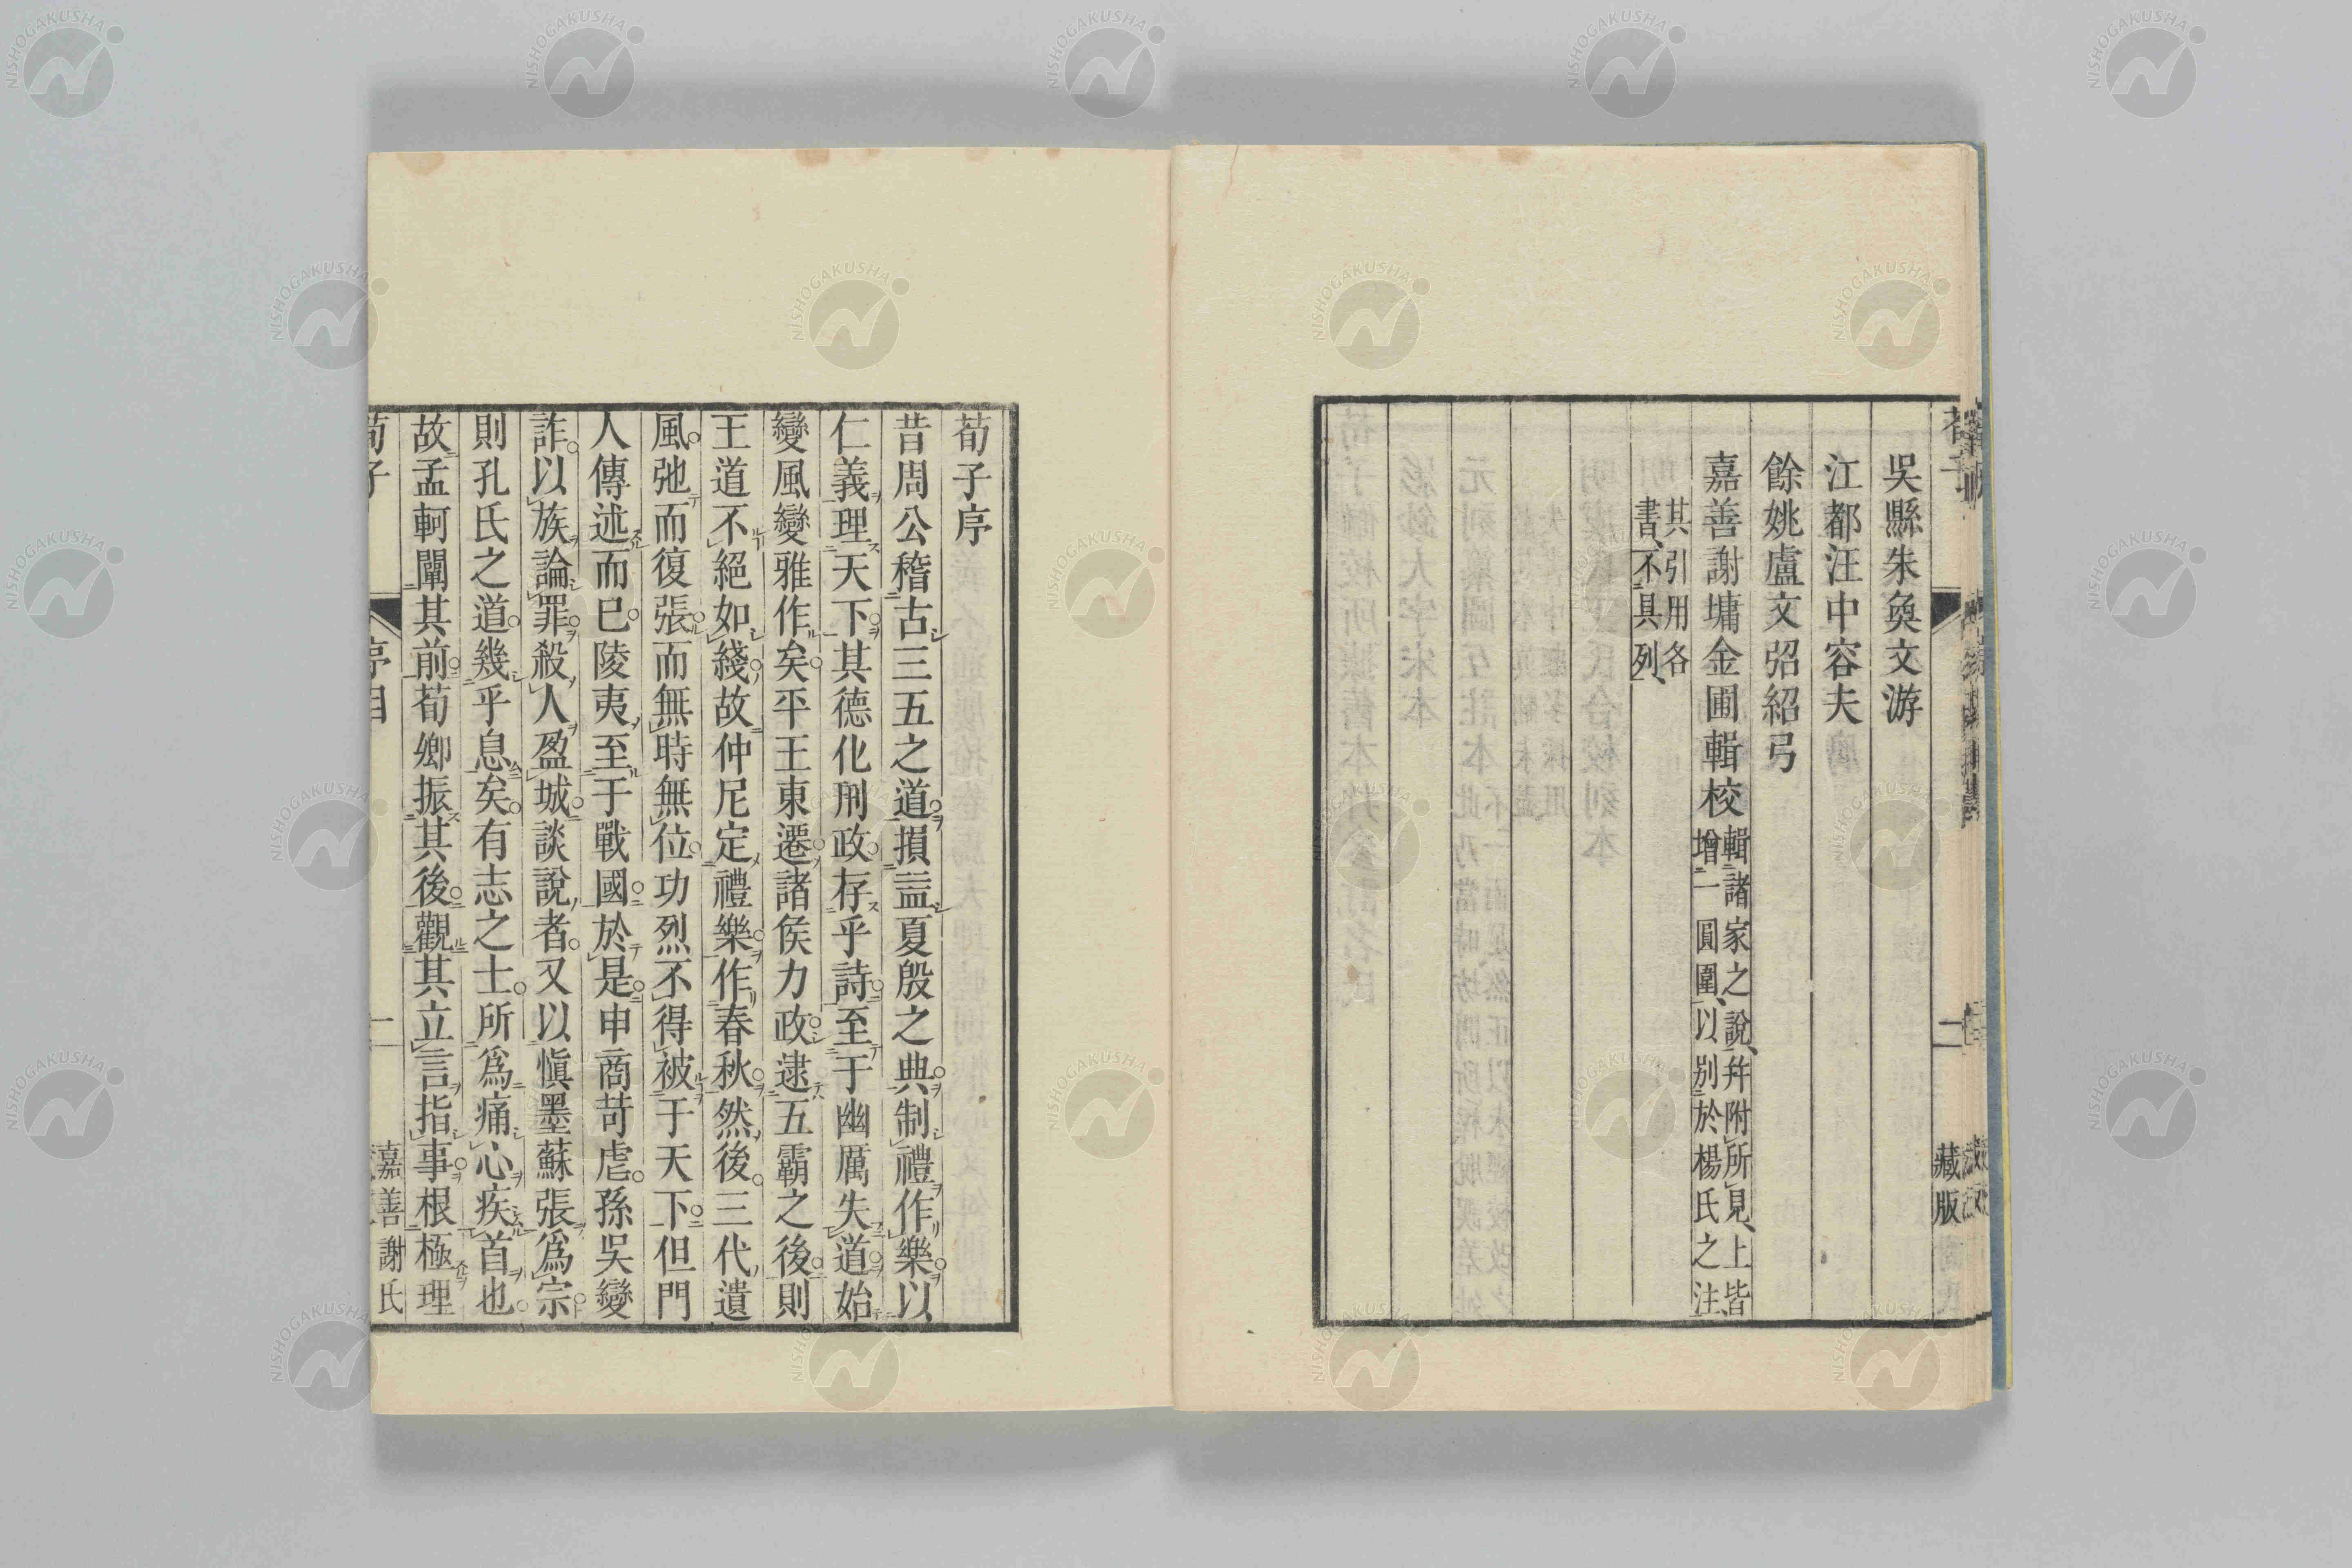 吳縣朱奐文游
江都汪中容夫
餘姚盧文弨紹弓
嘉善謝墉金圃輯校輯諸家之說、幷附所見、上皆
增一圓圍、以別於楊氏之注、
其引用各
書、不具列、
二
藏版
荀子序
昔周公稽古三五之道損益夏殷之典制禮作樂以
仁義理天下其德化刑政存乎詩至于幽厲失道始
變風變雅作矣平王東遷諸侯力政逮五霸之後則
王道不絕如綫故仲尼定禮樂作春秋然後三代遺
風弛而復張而無時無位功烈不得被于天下但門
人傳述而已陵夷至于戰國於是申商苛虐孫吳變
詐以族論罪殺人盈城談說者又以愼墨蘇張爲宗
則孔氏之道幾乎息矣有志之士所爲痛心疾首也
故孟軻闡其前荀卿振其後觀其立言指事根極理
荀子
序目
一
嘉善謝氏
NISHOGAKUSHA